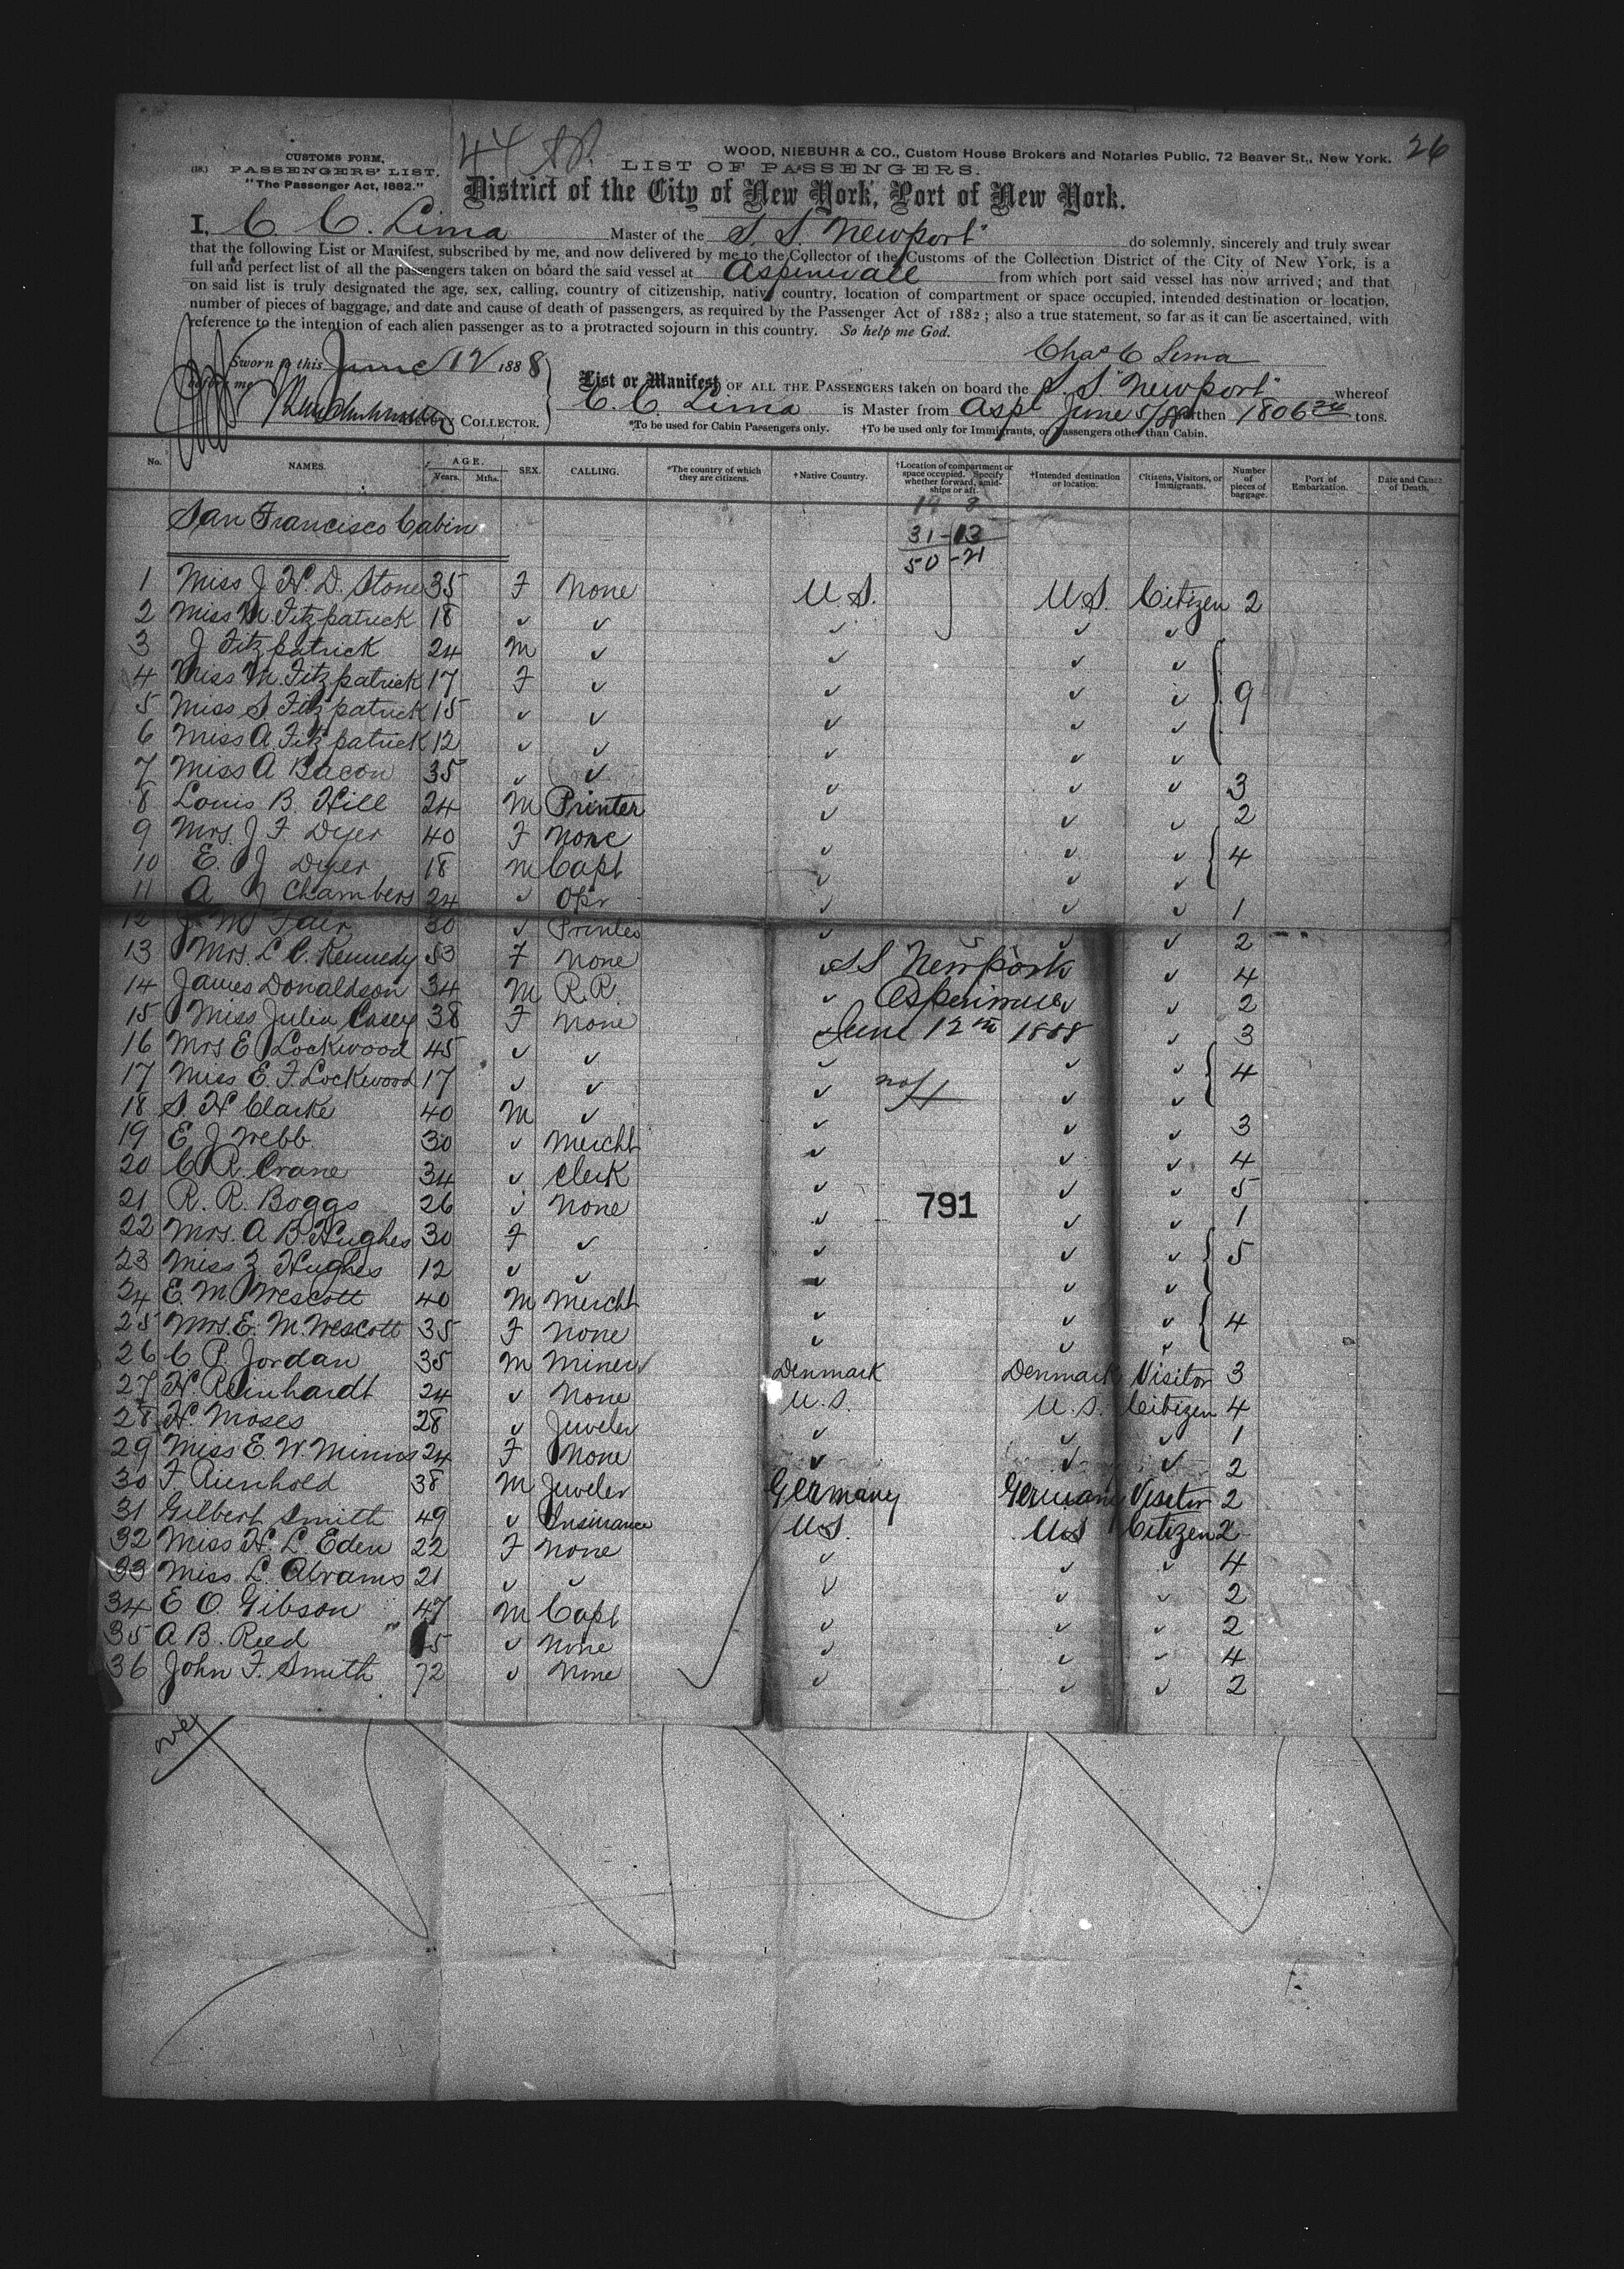 26
44
CUSTOMS FORM,
PASSENGERS' LIST.
"The Passenger Act, 1882."
WOOD, NIEBUHR & CO., Custom House Brokers and Notaries Public, 72 Beaver St., New York.
LIST OF PASSENGERS.
District of the City of New York, Port of New York.
I, C. C. Lima Master of the S. S. Newport do solemnly, sincerely and truly swear
that the following List or Manifest, subscribed by me, and now delivered by me to the Collector of the Customs of the Collection District of the City of New York, is a
full and perfect list of all the passengers taken on board the said vessel at Aspinwall from which port said vessel has now arrived; and that
on said list is truly designated the age, sex, calling, country of citizenship, native country, location of compartment or space occupied, intended destination or location,
number of pieces of baggage, and date and cause of death of passengers, as required by the Passenger Act of 1882; also a true statement, so far as it can be ascertained, with
reference to the intention of each alien passenger as to a protracted sojourn in this country. So help me God.
Chas C Lima
Sworn to this June 12 1888
before me
DEPUTY COLLECTOR.
List or Manifest OF ALL THE PASSENGERS taken on board the S. S. "Newport" whereof
C. C. Lima is Master from Aspl June 5/88 burthen 1806 tons.
*To be used for Cabin Passengers only. †To be used only for Immigrants, or Passengers other than Cabin.
No. NAMES. AGE. Years. Mths. SEX. CALLING. *The country of which they are citizens. †Native Country. †Location of compartment or space occupied. Specify whether forward, amidships or aft. †Intended destination or location. Citizens, Visitors, or Immigrants. Number of pieces of baggage. Port of Embarkation. Date and Cause of Death.
San Francisco Cabin
19 8
31-13
50-21
1 Miss J. H. D. Stone 35 F None U.S. U.S. Citizen 2
2 Miss M. Fitzpatrick 18 ✓ ✓ ✓ ✓ ✓
3 J Fitzpatrick 24 M ✓ ✓ ✓ ✓
4 Miss M. Fitzpatrick 17 F ✓ ✓ ✓ ✓ 9
5 Miss S. Fitzpatrick 15 ✓ ✓ ✓ ✓ ✓
6 Miss A Fitzpatrick 12 ✓ ✓ ✓ ✓ ✓
7 Miss A Bacon 35 ✓ ✓ ✓ ✓ ✓ 3
8 Louis B. Hill 24 M Printer ✓ ✓ ✓ 2
9 Mrs. J. F. Dyer 40 F None ✓ ✓ ✓ 4
10 E. J Dyer 18 M Capt ✓ ✓ ✓
11 A J Chambers 24 ✓ Opr ✓ ✓ ✓ 1
12 J M Fair 30 ✓ Printer ✓ ✓ ✓ 2
13 Mrs. L. C. Kennedy 53 F None ✓ ✓ 4
14 James Donaldson 34 M R.R. ✓ ✓ 2
15 Miss Julia Casey 38 F None ✓ 3
SS Newport
Aspinwall
June 12th 1888
16 Mrs E Lockwood 45 ✓ ✓ ✓ ✓ ✓ 4
17 Miss E. F. Lockwood 17 ✓ ✓ ✓ ✓ ✓
18 S. H Clarke 40 M ✓ ✓ ✓ ✓ 3
19 E. J Webb 30 ✓ Mercht ✓ ✓ ✓ 4
20 C. R. Crane 34 ✓ Clerk ✓ ✓ ✓ 5
791
21 R. R. Boggs 26 ✓ None ✓ ✓ ✓ 1
22 Mrs. A B Hughes 30 F ✓ ✓ ✓ ✓ 5
23 Miss Z Hughes 12 ✓ ✓ ✓ ✓ ✓
24 E. M. Wescott 40 M Mercht ✓ ✓ ✓ 4
25 Mrs. E. M. Wescott 35 F None ✓ ✓ ✓
26 C P. Jordan 35 M Miner Denmark Denmark Visitor 3
27 H. Reinhardt 24 ✓ None U.S. U.S. Citizen 4
28 H. Moses 28 ✓ Jeweler ✓ ✓ ✓ 1
29 Miss E. W. Minns 24 F None ✓ ✓ ✓ 2
30 F Rienhold 38 M Jeweler Germany Germany Visitor 2
31 Gilbert Smith 49 ✓ Insurance U.S. U.S Citizen 2
32 Miss H. L. Eden 22 F None ✓ ✓ ✓ 4
33 Miss L. Abrams 21 ✓ ✓ ✓ ✓ ✓ 2
34 E O. Gibson 47 M Capt ✓ ✓ ✓ 2
35 A B. Reed ✓ None ✓ ✓ ✓ 4
36 John F. Smith 72 ✓ None ✓ ✓ ✓ 2